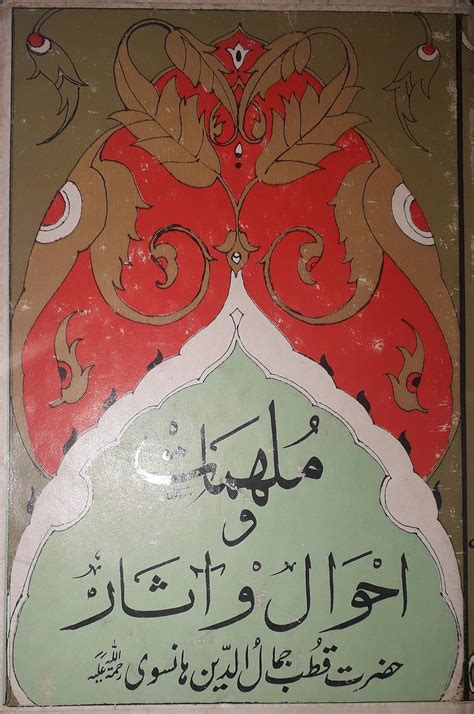 مُلہمات
و
احوال و آثار
حضرت قطب جمالُ الدّین ہانسوی رحمۃ اللہ علیہ